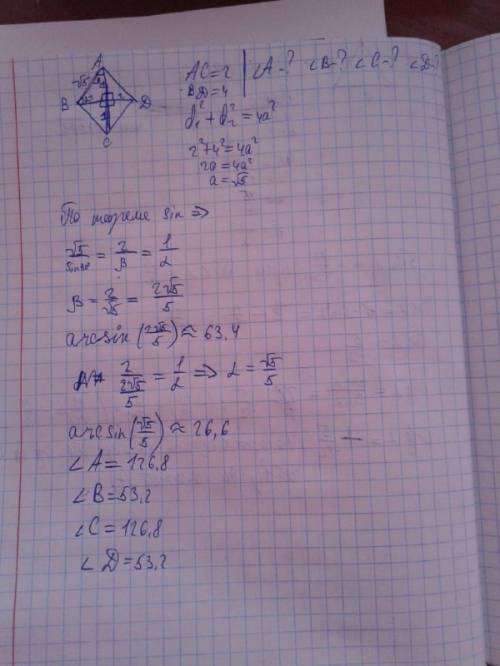 A
√5
B
D
C
AC=2 | ∠A-? ∠B-? ∠C-? ∠D-?
BD=4
d₁²+d₂²=4a²
2²+4²=4a²
20=4a²
a=√5
По теореме sin ⇒
√5/sin90 = 2/β = 1/α
β = 2/√5 = 2√5/5
arcsin(2√5/5) ≈ 63,4
2/(2√5/5) = 1/α ⇒ α = √5/5
arcsin(√5/5) ≈ 26,6
∠A = 126,8
∠B = 53,2
∠C = 126,8
∠D = 53,2